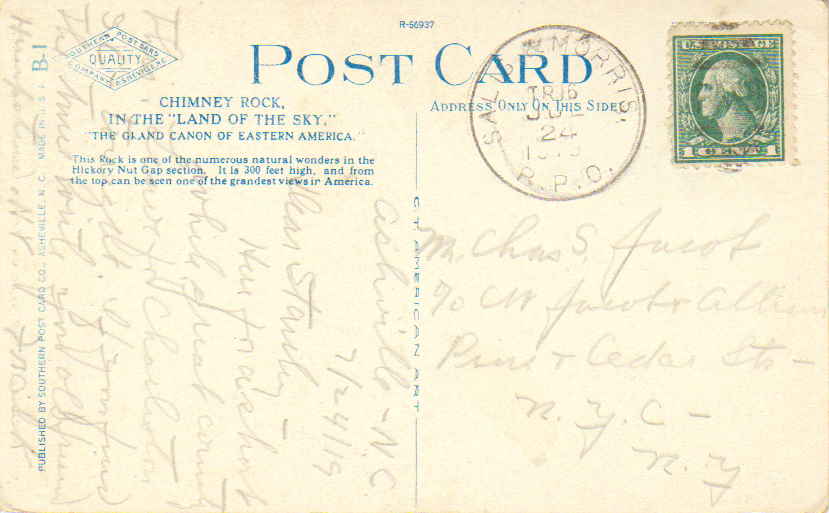 R-56937
POST CARD
SOUTHERN POST CARD
QUALITY
COMPANY ASHEVILLE N.C.
B-1
CHIMNEY ROCK,
IN THE "LAND OF THE SKY,"
"THE GLAND CANON OF EASTERN AMERICA."
This Rock is one of the numerous natural wonders in the
Hickory Nut Gap section. It is 300 feet high, and from
the top can be seen one of the grandest views ir America.
ADDRESS ONLY ON THIS SIDE
SAL & MORRIS.
TR 16
JUL
24
1919
R.P.O.
U.S. POSTAGE
1 CENT 1
PUBLISHED BY SOUTHERN POST CARD CO., ASHEVILLE, N. C. MADE IN U.S.A.
C.T. AMERICAN ART
Mr Chas S. Jacot
c/o CW Jacot & Allien
Pine & Cedar Sts -
N.Y.C -
N.Y
Ashville - N.C.
7/24/19
Dear Stanley
Here for a short
while great county
Charleston
your old friend